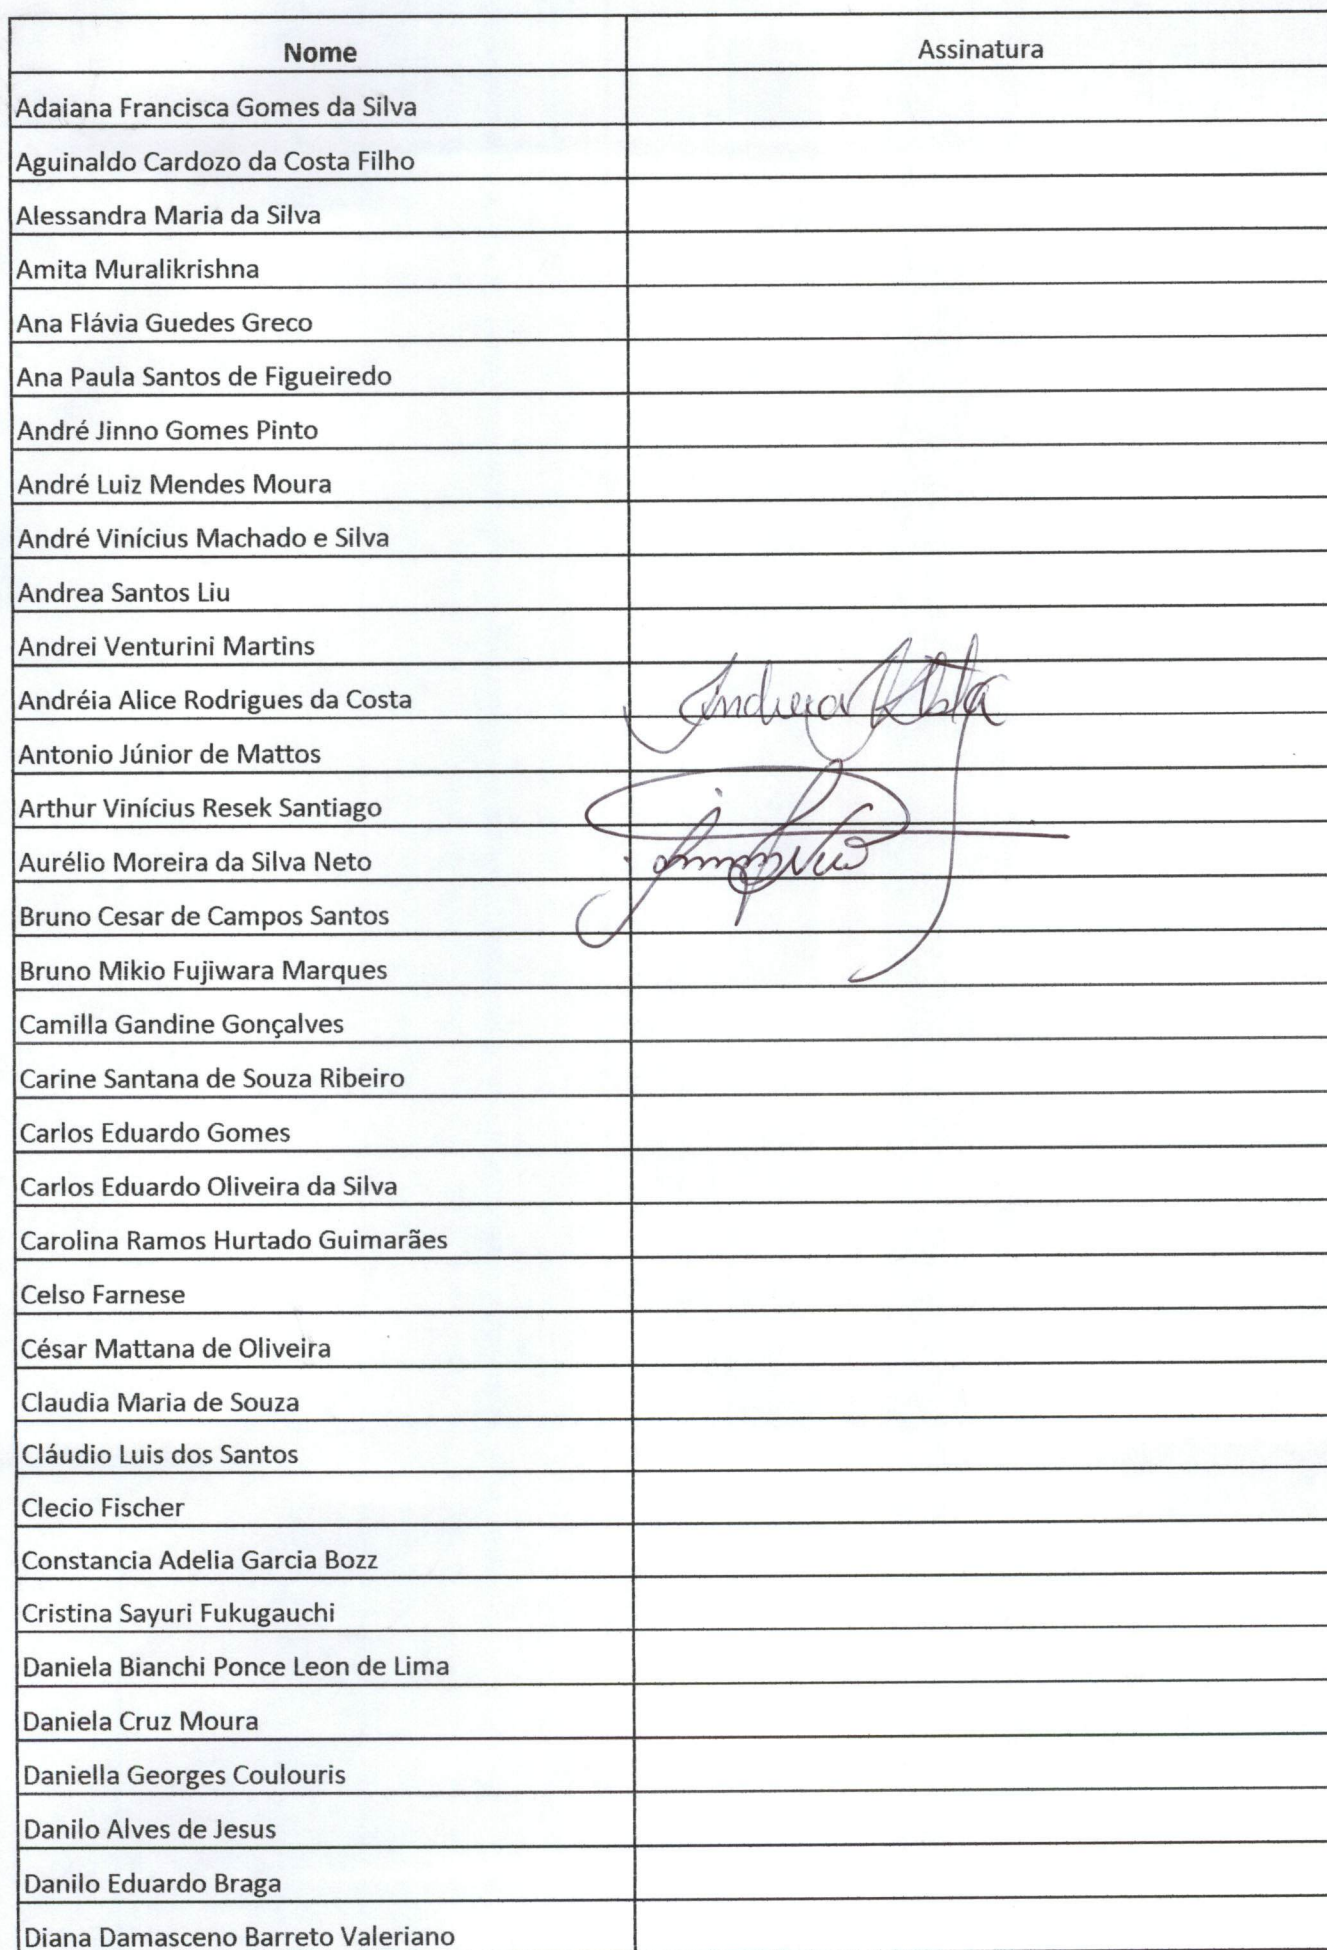 Nome Assinatura
Adaiana Francisca Gomes da Silva
Aguinaldo Cardozo da Costa Filho
Alessandra Maria da Silva
Amita Muralikrishna
Ana Flávia Guedes Greco
Ana Paula Santos de Figueiredo
André Jinno Gomes Pinto
André Luiz Mendes Moura
André Vinícius Machado e Silva
Andrea Santos Liu
Andrei Venturini Martins
Andréia Alice Rodrigues da Costa Andréia
Antonio Júnior de Mattos
Arthur Vinícius Resek Santiago
Aurélio Moreira da Silva Neto
Bruno Cesar de Campos Santos
Bruno Mikio Fujiwara Marques
Camilla Gandine Gonçalves
Carine Santana de Souza Ribeiro
Carlos Eduardo Gomes
Carlos Eduardo Oliveira da Silva
Carolina Ramos Hurtado Guimarães
Celso Farnese
César Mattana de Oliveira
Claudia Maria de Souza
Cláudio Luis dos Santos
Clecio Fischer
Constancia Adelia Garcia Bozz
Cristina Sayuri Fukugauchi
Daniela Bianchi Ponce Leon de Lima
Daniela Cruz Moura
Daniella Georges Coulouris
Danilo Alves de Jesus
Danilo Eduardo Braga
Diana Damasceno Barreto Valeriano